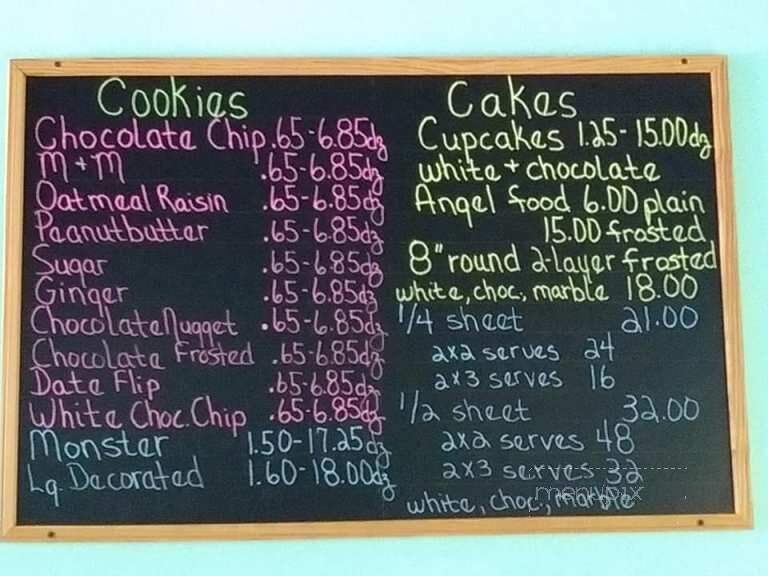 Cookies
Chocolate Chip .65-6.85dz
M+M .65-6.85dz
Oatmeal Raisin .65-6.85dz
Peanutbutter .65-6.85dz
Sugar .65-6.85dz
Ginger .65-6.85dz
Chocolate Nugget .65-6.85dz
Chocolate Frosted .65-6.85dz
Date Flip .65-6.85dz
White Choc. Chip .65-6.85dz
Monster 1.50-17.25dz
Lg. Decorated 1.60-18.00dz
Cakes
Cupcakes 1.25-15.00dz
white + chocolate
Angel food 6.00 plain
15.00 frosted
8" round 2-layer frosted
white, choc., marble 18.00
1/4 sheet 21.00
2x2 serves 24
2x3 serves 16
1/2 sheet 32.00
2x2 serves 48
2x3 serves 32
white, choc., marble
menupix